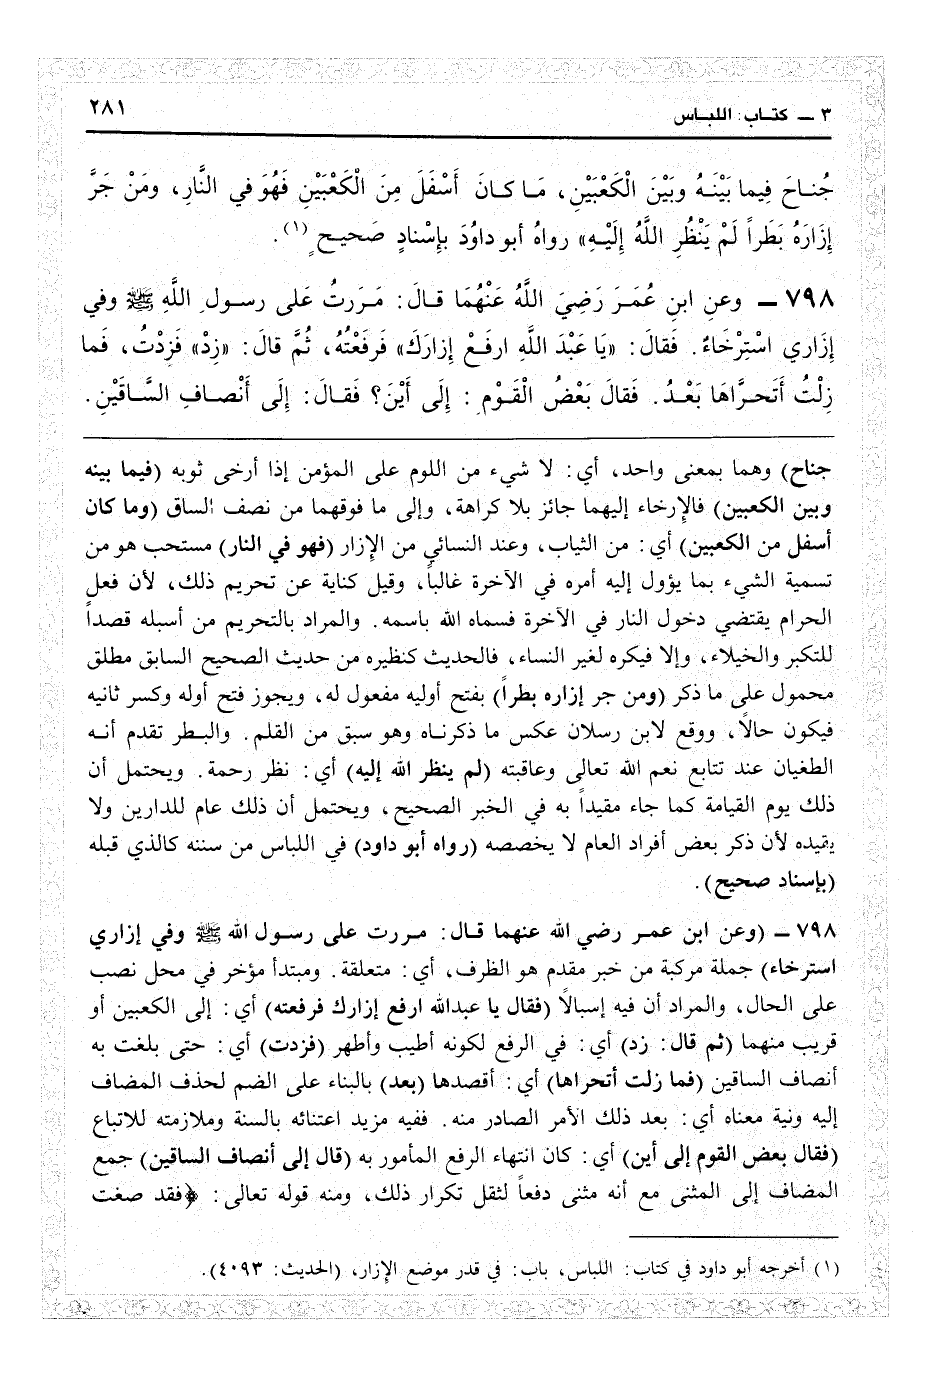 ٣ ـ كتـاب: اللبـاس
٢٨١
جُنـاحَ فِيما بَيْنَـهُ وبَيْنَ الْكَعْبَيْنِ، مَـا كانَ أَسْفَلَ مِنَ الْكَعْبَيْنِ فَهُوَ في النَّارِ، ومَنْ جَرَّ
إِزَارَهُ بَطَراً لَمْ يَنْظُرِ اللَّهُ إِلَيْـهِ» رواهُ أبو داوُدَ بإِسْنادٍ صَحيـحٍ(١).
٧٩٨ ـ وعنِ ابنِ عُمَـرَ رَضِيَ اللَّهُ عَنْهُمَا قـالَ: مَـرَرتُ عَلى رسـولِ اللَّهِ ﷺ وفي
إزَاري اسْتِرْخَاءٌ. فَقالَ: «يا عَبْدَ اللَّهِ ارفَـعْ إزارَكَ» فَرفَعْتُهُ، ثُمَّ قالَ: «زِدْ» فَزِدْتُ، فَما
زِلْتُ أَتَحـرَّاهَا بَعْـدُ. فَقالَ بَعْضُ الْقَـوْمِ: إلَى أَيْنَ؟ فَقـالَ: إلَى أَنْصـافِ السَّـاقَيْنِ.
جناح) وهما بمعنى واحد، أي: لا شيء من اللوم على المؤمن إذا أرخى ثوبه (فيما بينه
وبين الكعبين) فالإِرخاء إليهما جائز بلا كراهة، وإلى ما فوقهما من نصف الساق (وما كان
أسفل من الكعبين) أي: من الثياب، وعند النسائي من الإِزار (فهو في النار) مستحب هو من
تسمية الشيء بما يؤول إليه أمره في الآخرة غالباً، وقيل كناية عن تحريم ذلك، لأن فعل
الحرام يقتضي دخول النار في الآخرة فسماه الله باسمه. والمراد بالتحريم من أسبله قصداً
للتكبر والخيلاء، وإلا فيكره لغير النساء، فالحديث كنظيره من حديث الصحيح السابق مطلق
محمول على ما ذكر (ومن جر إزاره بطراً) بفتح أوليه مفعول له، ويجوز فتح أوله وكسر ثانيه
فيكون حالاً، ووقع لابن رسلان عكس ما ذكرنـاه وهو سبق من القلم. والبـطر تقدم أنـه
الطغيان عند تتابع نعم الله تعالى وعاقبته (لم ينظر الله إليه) أي: نظر رحمة. ويحتمل أن
ذلك يوم القيامة كما جاء مقيداً به في الخبر الصحيح، ويحتمل أن ذلك عام للدارين ولا
يقيده لأن ذكر بعض أفراد العام لا يخصصه (رواه أبو داود) في اللباس من سننه كالذي قبله
(بإسناد صحيح).
٧٩٨ ـ (وعن ابن عمـر رضي الله عنهما قـال: مـررت على رسـول الله ﷺ وفي إزاري
استرخاء) جملة مركبة من خبر مقدم هو الظرف، أي: متعلقة. ومبتدأ مؤخر في محل نصب
على الحال، والمراد أن فيه إسبالاً (فقال يا عبدالله ارفع إزارك فرفعته) أي: إلى الكعبين أو
قريب منهما (ثم قال: زد) أي: في الرفع لكونه أطيب وأطهر (فزدت) أي: حتى بلغت به
أنصاف الساقين (فما زلت أتحراها) أي: أقصدها (بعد) بالبناء على الضم لحذف المضاف
إليه ونية معناه أي: بعد ذلك الأمر الصادر منه. ففيه مزيد اعتنائه بالسنة وملازمته للاتباع
(فقال بعض القوم إلى أين) أي: كان انتهاء الرفع المأمور به (قال إلى أنصاف الساقين) جمع
المضاف إلى المثنى مع أنه مثنى دفعاً لثقل تكرار ذلك، ومنه قوله تعالى: ﴿فقد صغت
(١) أخرجه أبو داود في كتاب: اللباس، باب: في قدر موضع الإِزار، (الحديث: ٤٠٩٣).